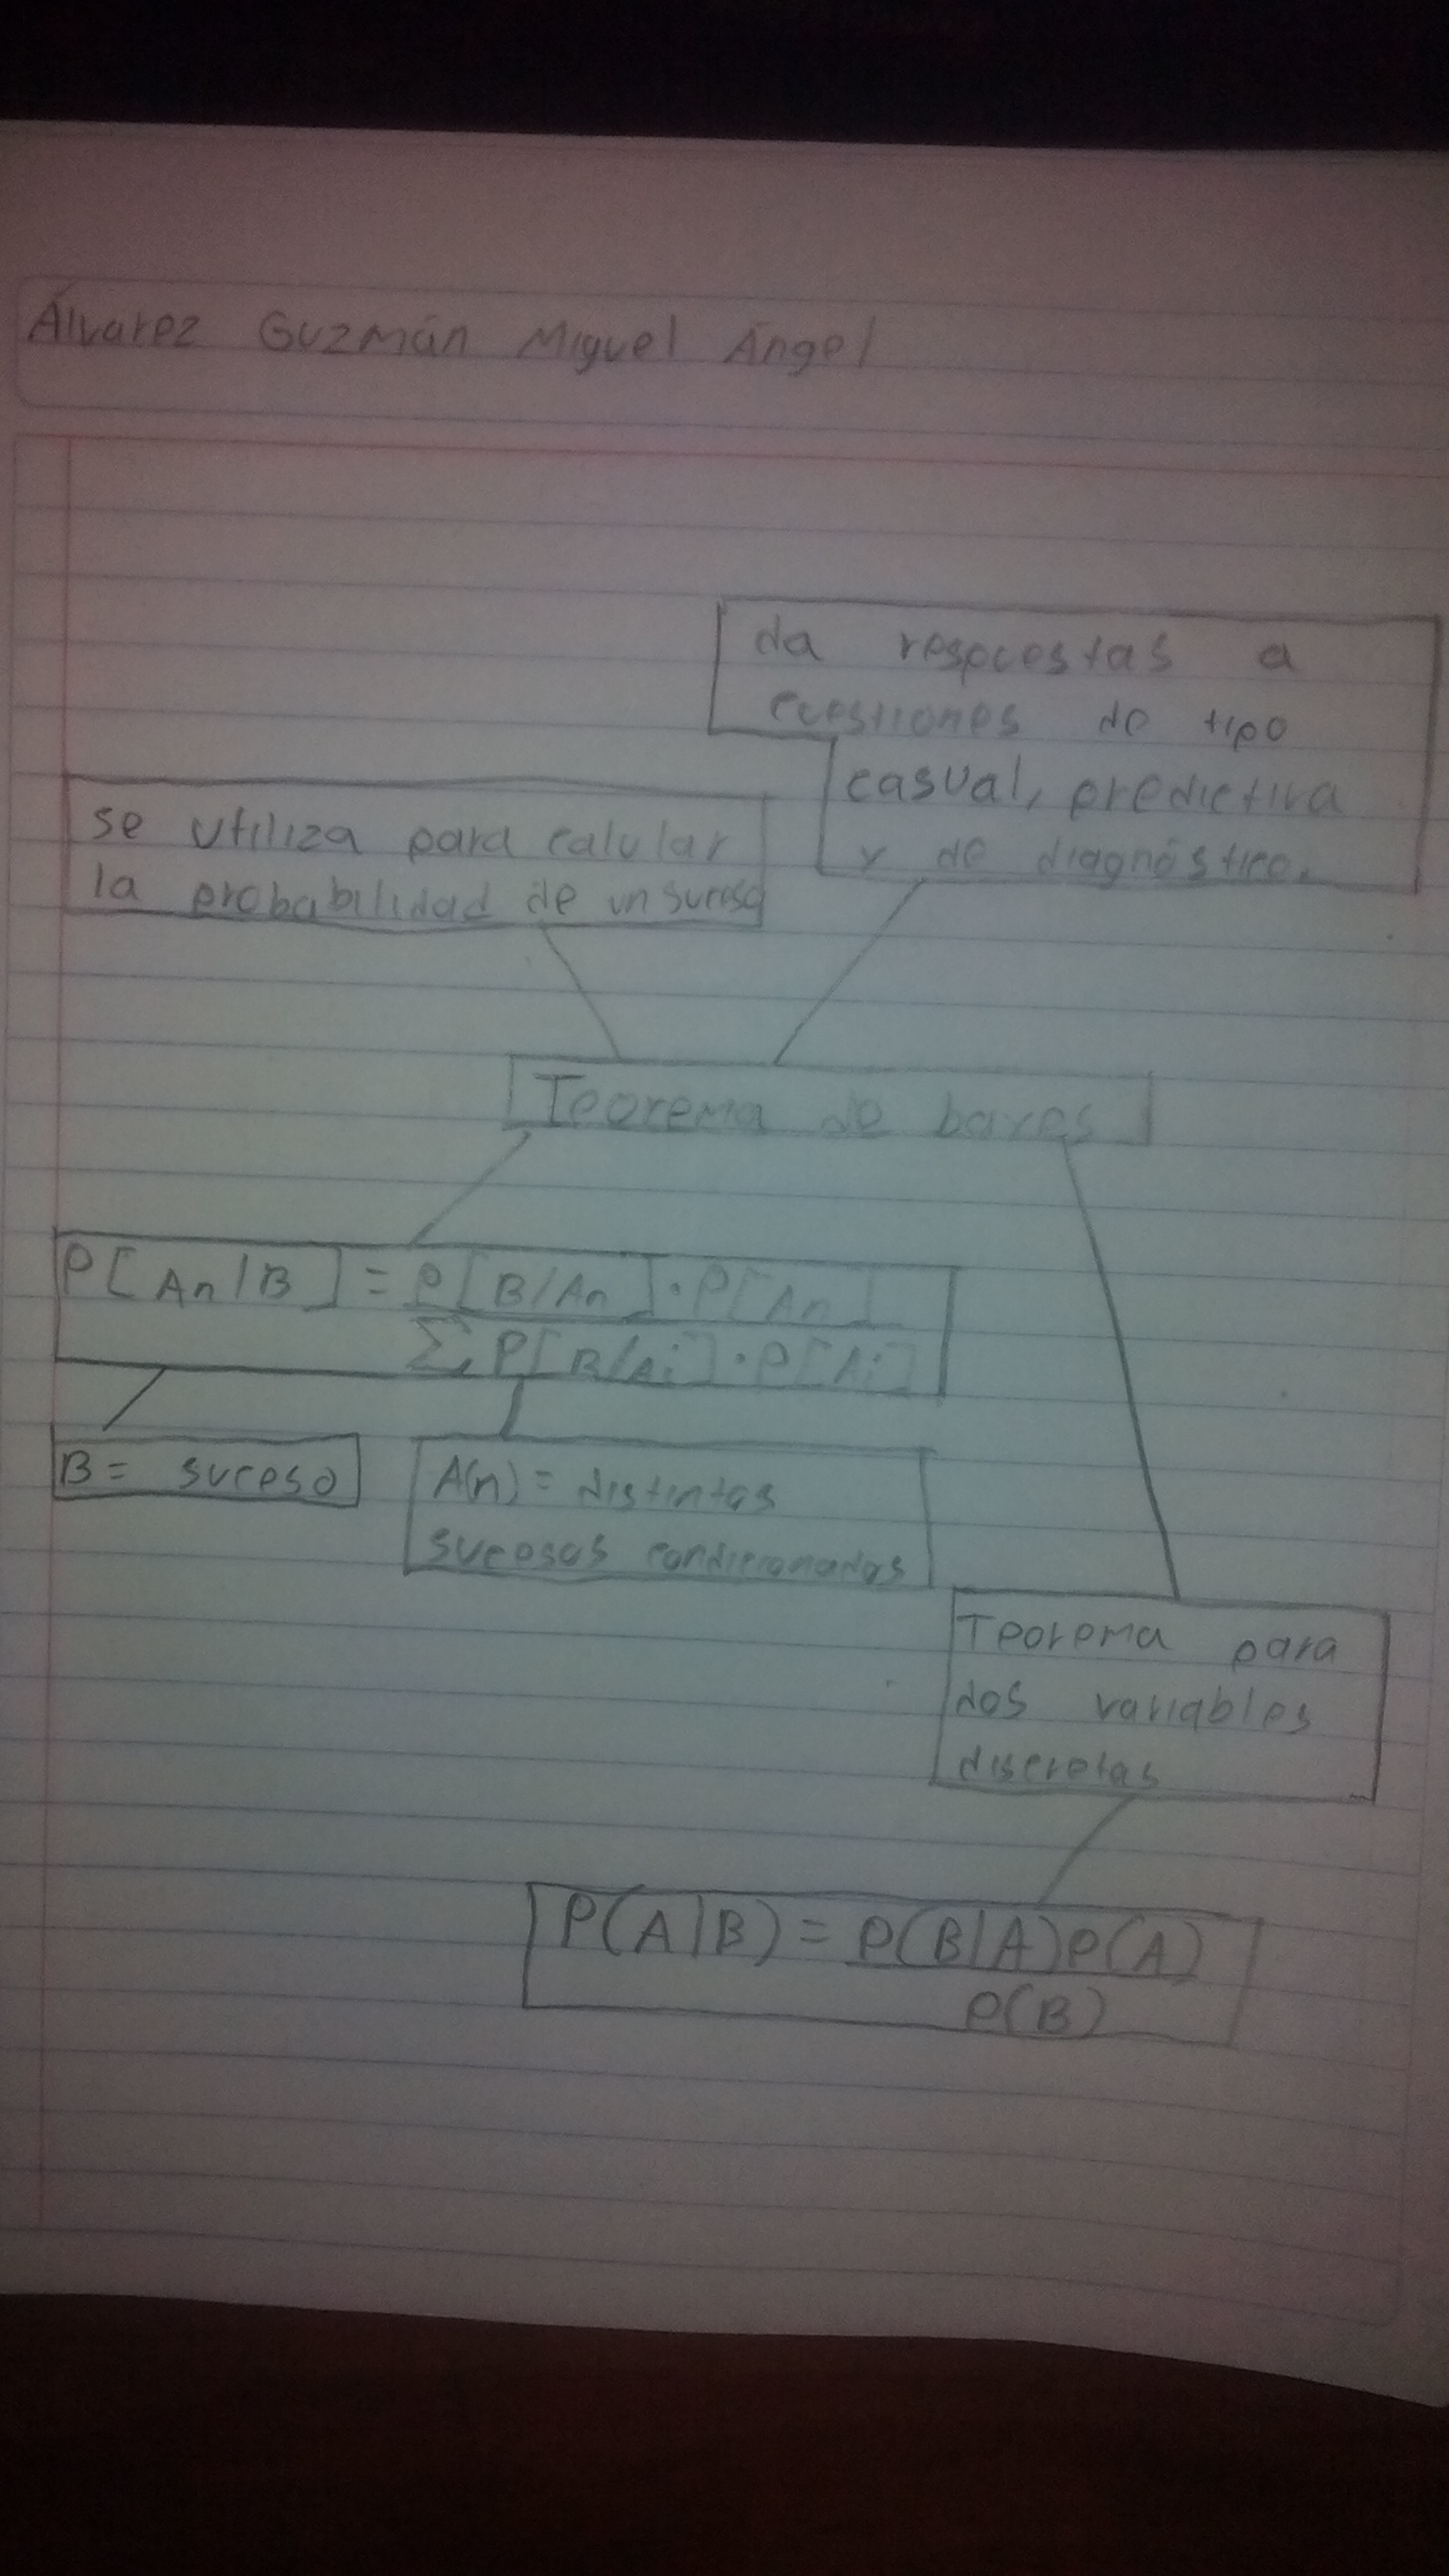 Álvarez Guzmán Miguel Ángel
da respuestas a
cuestiones de tipo
casual, predictiva
y de diagnóstico.
se utiliza para calular
la probabilidad de un suceso
Teorema de bayes
P[An/B] = P[B/An] · P[An]
∑ P[B/Ai] · P[Ai]
B = suceso
A(n) = distintos
sucesos condicionados
Teorema para
dos variables
discretas
P(A|B) = P(B|A)P(A)
P(B)